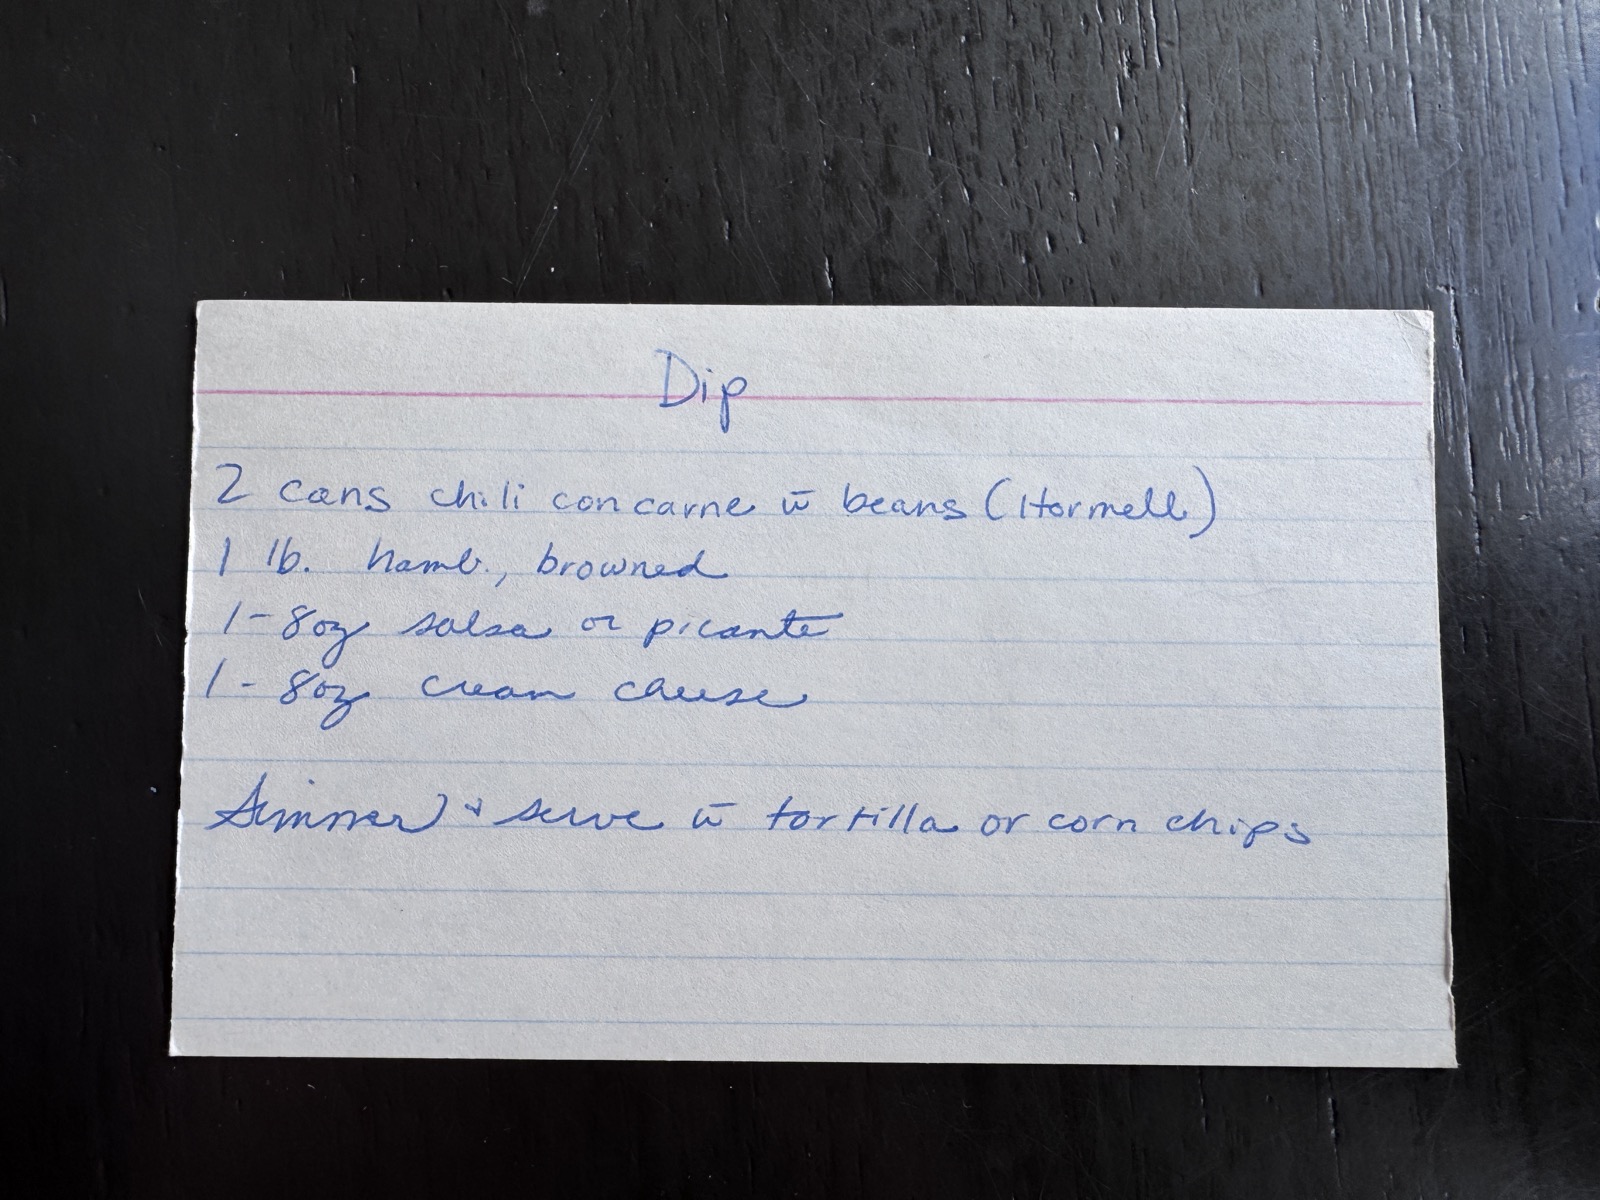 Dip
2 cans chili con carne w̄ beans (Hormell)
1 lb. hamb., browned
1-8oz salsa or picante
1-8oz cream cheese
Simmer & serve w̄ tortilla or corn chips